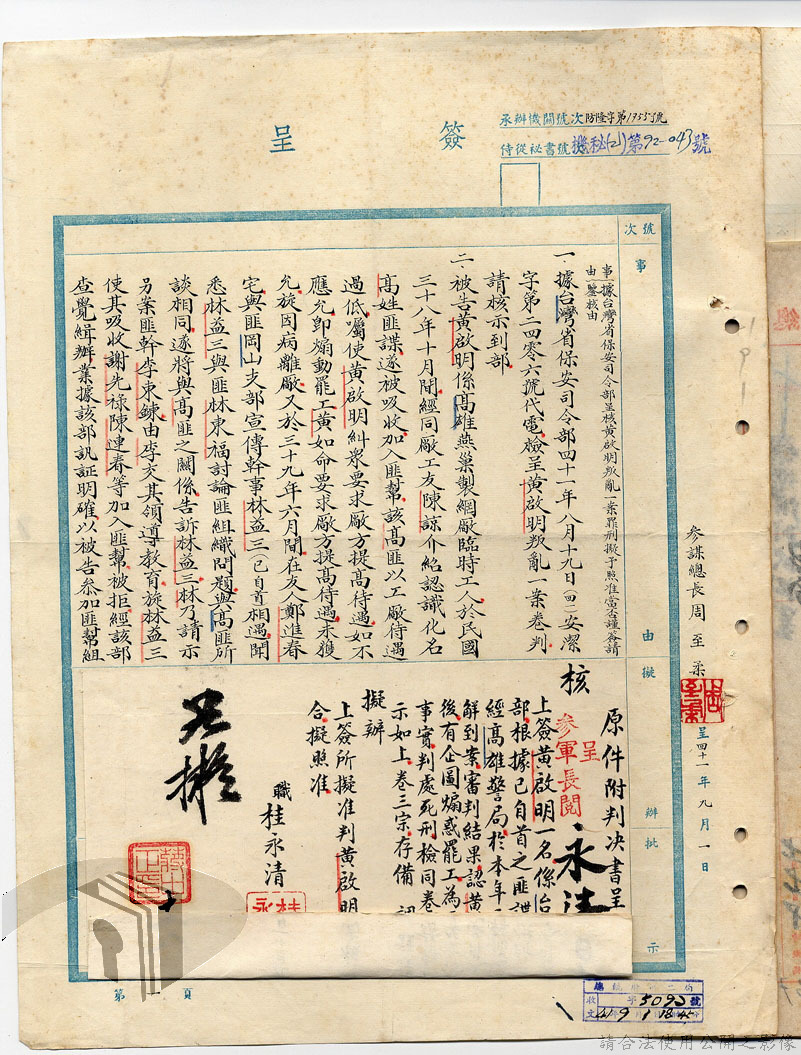 簽呈
承辦機關號次防隆字第1955號
侍從祕書號次機秘(21)第92-043號
號次
事由
擬辦
批示
參謀總長周至柔
呈四十一年九月一日
事由 據台灣省保安司令部呈核黃啟明叛亂一案罪刑擬予照准當否謹簽請鑒核由
一、據台灣省保安司令部四十一年八月十九日(四一)安潔
字第二四零六號代電檢呈黃啟明叛亂一案卷判
請核示到部
二、被告黃啟明係高雄燕巢製網廠臨時工人於民國
三十八年十月間經同廠工友陳諒介紹認識化名
高姓匪諜遂被吸收加入匪幫該高匪以工廠待遇
過低囑使黃啟明糾眾要求廠方提高待遇如不
應允即煽動罷工黃如命要求廠方提高待遇未獲
允旋因病離廠又於三十九年六月間在友人鄭進春
宅與匪岡山支部宣傳幹事林益三(已自首)相遇開
悉林益三與匪林東福討論匪組織問題與高匪所
談相同遂將與高匪之關係告訴林益三林乃請示
另案匪幹李東鍊由李交其領導教育旋林益三
使其吸收謝光祿陳連春等加入匪幫被拒經該部
查覺緝辦業據該部訊証明確以被告參加匪幫組
原件附判決書呈
核
呈
參軍長閱
上簽黃啟明一名係治
部根據已自首之匪諜
經高雄警局於本年
解到案審判結果認黃
後有企圖煽惑罷工為
事實判處死刑檢同卷
示如上卷三宗存備
擬辦
上簽所擬准判黃啟明
合擬照准
職桂永清
如擬
第一頁
收文 字5092號
41 9 1 18 45
請合法使用公開之影像